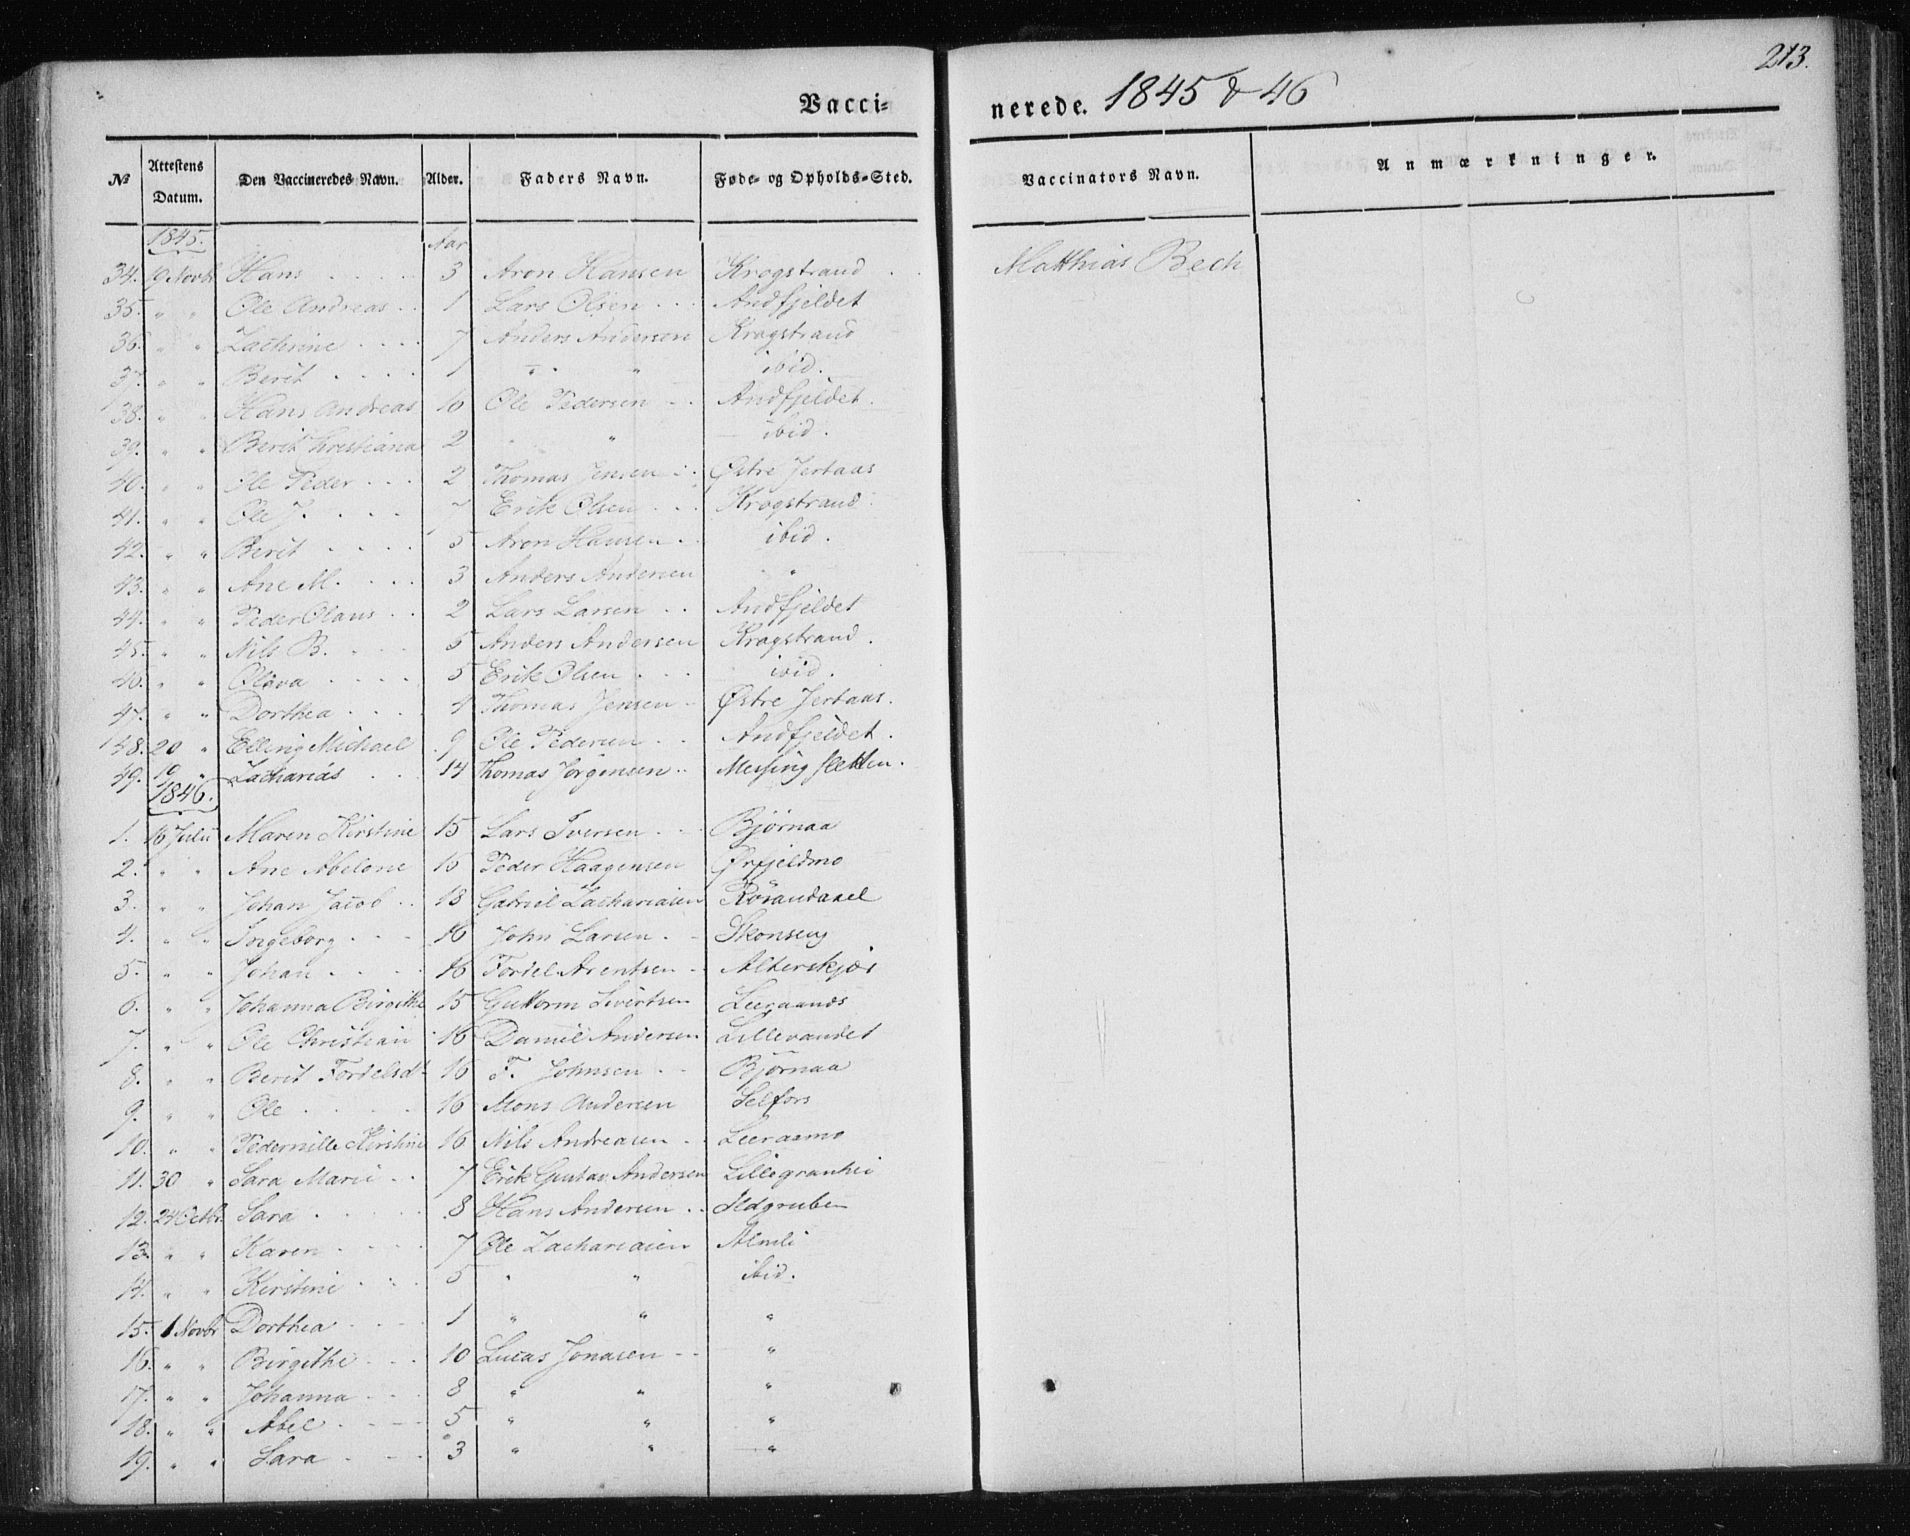 213.
Vacci= nerede. 1845 & 46
№ Attestens Datum. Den Vaccineredes Navn. Alder. Faders Navn. Føde- og Opholds-Sted. Vaccinators Navn. Anmærkninger.
1845. Aar
34. 19 Novbr Hans . . . . 3 Aron Hansen Krogstrand Matthias Bech
35. " " Ole Andreas . . 1 Lars Olsen . . . Andfjeldet
36. " " Zachrine . . . . 7 Anders Andersen Krogstrand
37. " " Berit . . . . 1 " " ibid.
38. " " Hans Andreas 10 Ole Pedersen . . Andfjeldet.
39. " " Berit Christiana 2 " " ibid.
40. " " Ole Peder . . . 2 Thomas Jensen . . Østre Jertaas
41. " " Ole J. . . . . 7 Erik Olsen . . . Krogstrand
42. " " Berit . . . . 5 Aron Hansen . . ibid.
43. " " Ane M. . . . . 3 Anders Andersen "
44. " " Peder Olaus . . 2 Lars Larsen . . Andfjeldet
45. " " Nils B. . . . 5 Anders Andersen Krogstrand.
46. " " Olava . . . . 5 Erik Olsen . . . ibid.
47. " " Dorthea . . . 4 Thomas Jensen . Østre Jertaas.
48. 20 " Elling Michael . 9 Ole Pedersen . . Andfjeldet.
49. 19 " Zacharias . . 14 Thomas Jørgensen . . Messingsletten.
1846.
1. 16 Julii Maren Kirstine 15 Lars Iversen . . Bjørnaa
2. " " Ane Abelone 16 Peder Haagensen Ørfjeldmo
3. " " Johan Jacob . . 18 Gabriel Zachariasen
4. " " Ingeborg . . . 16 John Larsen . . Skonseng
5. " " Johan . . . . 16 Fordel Arentsen . . Alterskjær
6. " " Johanna Birgithe 15 Guttorm Sivertsen Leeraands
7. " " Ole Christian . 16 Daniel Andersen Lillevandet
8. " " Berit Fordelsdt 16 F. Johnsen . . Bjørnaa
9. " " Ole . . . . . 16 Mons Andersen Selfors
10. " " Pedernille Kirstine 16 Nils Andreasen . . Leeraamo
11. 30 " Sara Marie . . 7 Erik Gustav Andersen Lillegranhei
12. 24 Octbr. Sara . . . . . 8 Hans Andersen . . Ildgruben
13. " " Karen . . . . 7 Ole Zachariasen Almli
14. " " Kirstine . . . 5 " " ibid.
15. 1 Novbr Dorthea . . . . 1 " " "
16. " " Birgithe . . . 10 Lucas Jonasen . . "
17. " " Johanna . . . 8 " " "
18. " " Abel . . . . 5 " " "
19. " " Sara . . . . 3 " " "